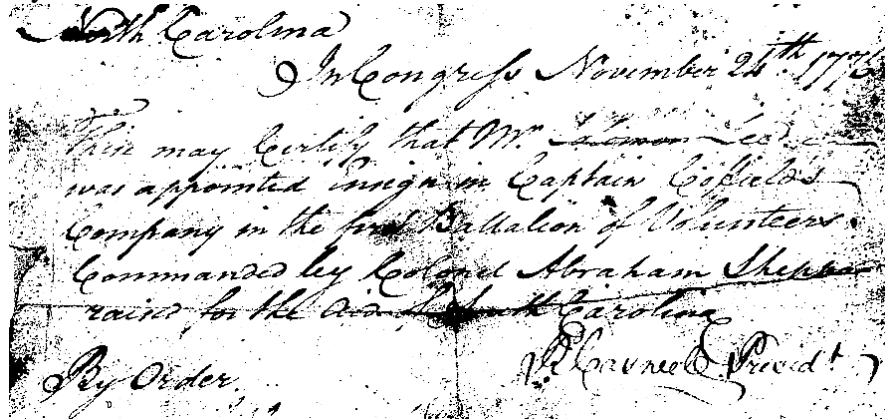 North Carolina
In Congress November 24th 177
This may Certify that Mr.
was appointed Insign in Captain Cofield's
Company in the first Battalion of Volunteers
Commanded by Colonel Abraham Sheppar
raised for the aid of South Carolina
By Order. Presidt